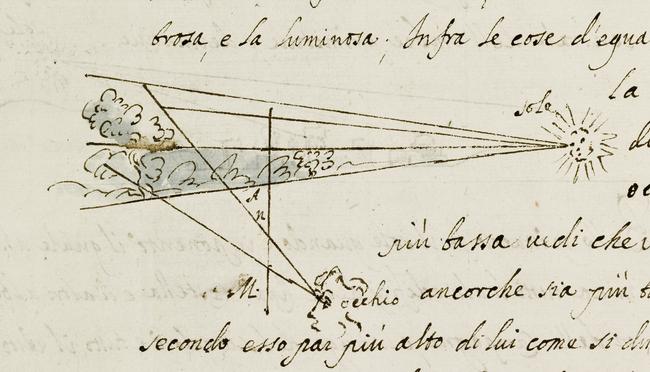 brosa, e la luminosa. Infra le cose d'egua
la
sole
A
n
più bassa vedi che
M. occhio ancorche sia più
secondo esso par più alto di lui come si di